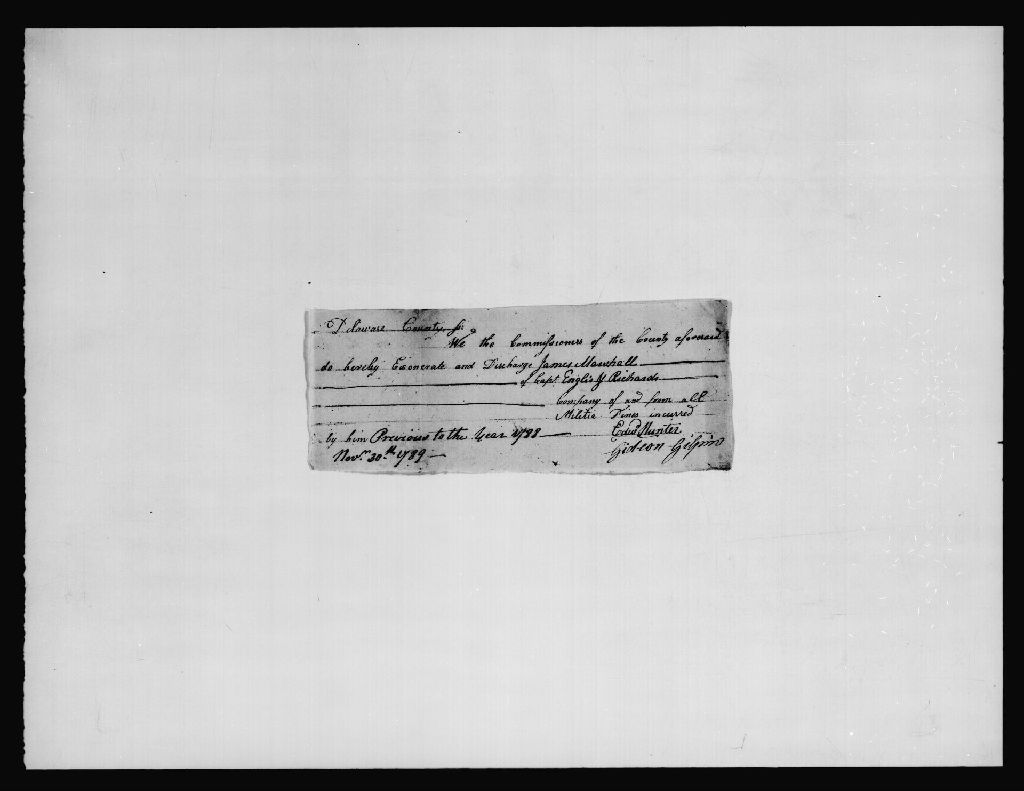 Delaware County ss.
We the Commissioners of the County aforesaid
do hereby Exonerate and Discharge James Marshall
of Capt. Richards
Company of and from all
Militia Fines incurred
by him Previous to the Year 1788
Edwd Hunter
Novr. 30th 1789
Gideon Gilpin